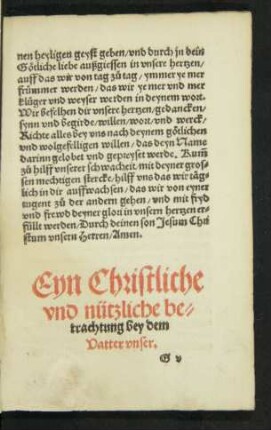 nen heyligen geyst geben/vnd durch jn dein
Götliche liebe außgiessen in vnsere hertzen/
auff das wir von tag zů tag/ymmer ye mer
frümmer werden/das wir ye mer vnd mer
klüger vnd weyser werden in deynem wort.
Wir befelhen dir vnsere hertzen/gedancken/
synn vnd begirde/willen/wort/vnd werck/
Richte alles bey vns nach deynem götlichen
vnd wolgefelligen willen/das deyn Name
darinn gelobet vnd gepreyset werde. Kum̃
zů hilff vnserer schwacheit/mit deyner gros-
sen mechtigen stercke/hilff vns das wir täg-
lich in dir auffwachsen/das wir von eyner
tugent zů der andern gehen/vnd mit fryd
vnd frewd deyner glori in vnsern hertzen er-
füllt werden/Durch deinen son Jesum Chri
stum vnsern Herren/Amen.
Eyn Christliche
vnd nützliche be-
trachtung bey dem
Vatter vnser.
G v